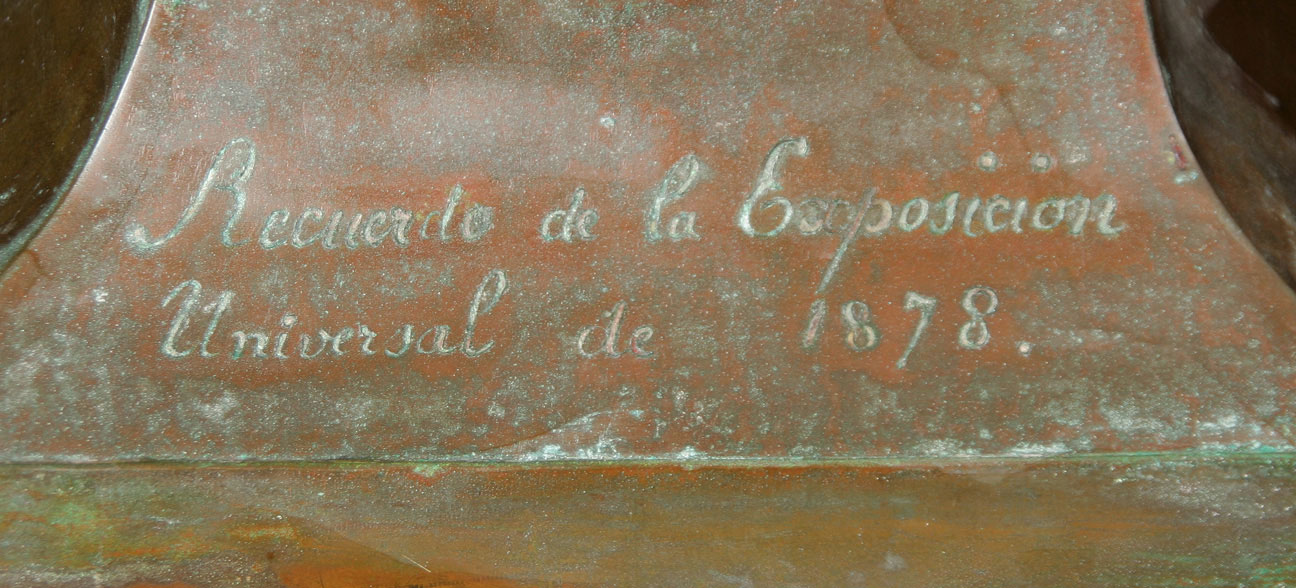 Recuerdo de la Exposición
Universal de 1878.